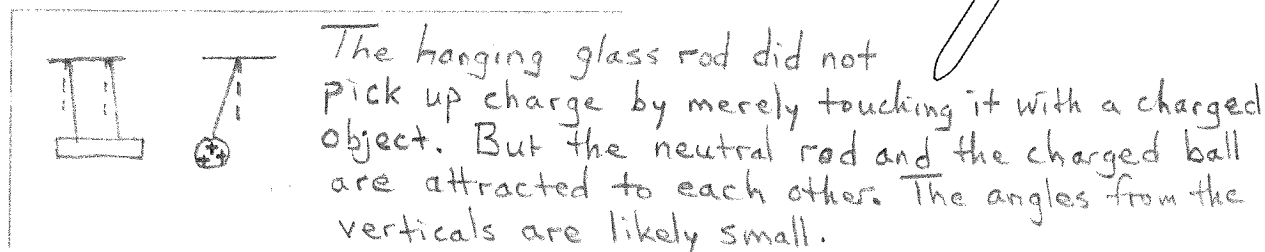 The hanging glass rod did not
pick up charge by merely touching it with a charged
object. But the neutral rod and the charged ball
are attracted to each other. The angles from the
verticals are likely small.